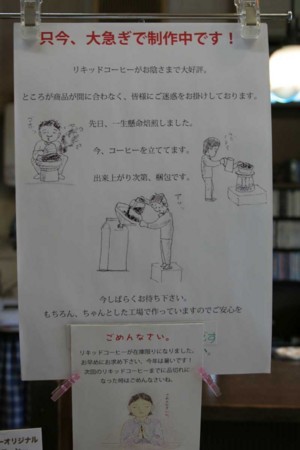 只今、大急ぎで制作中です！
リキッドコーヒーがお陰さまで大好評。
ところが商品が間に合わなく、皆様にご迷惑をお掛けしております。
先日、一生懸命焙煎しました。
今、コーヒーを立ててます。
出来上がり次第、梱包です。
今しばらくお待ち下さい。
もちろん、ちゃんとした工場で作っていますのでご安心を
ごめんなさい。
リキッドコーヒーが在庫限りになりました。
お早めにお求め下さい。今年は暑いです！
次回のリキッドコーヒーまでに品切れに
なった時はごめんなさいね。
ーオリジナル